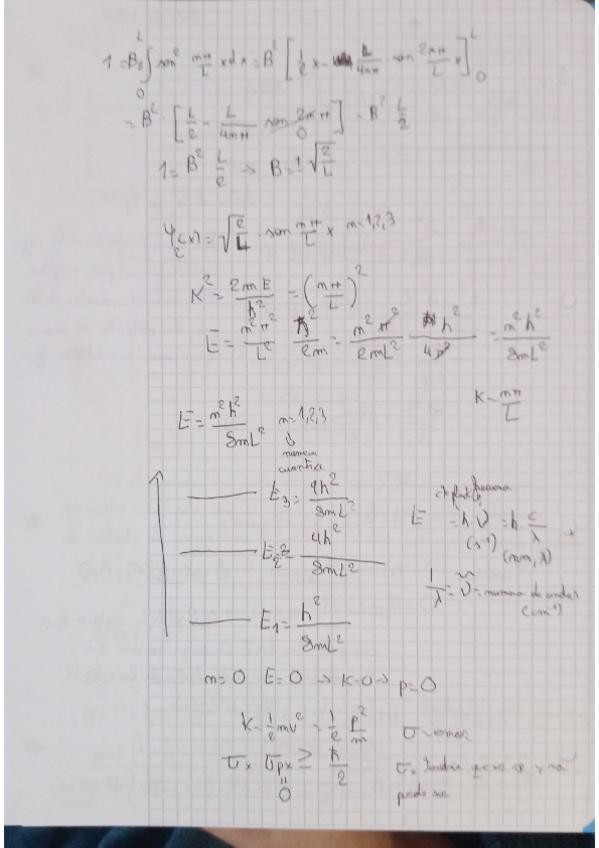 1 = B² ∫₀ᴸ sen² nπ/L x dx = B² [ 1/2 x - L/4nπ · sen 2nπ/L x ]₀ᴸ
= B² · [ L/2 - L/4nπ sen 2nπ 0 ] = B² L/2
1 = B² L/2 → B = ± √2/L
Ψ₂(x) = √2/L · sen nπ/L x n=1,2,3
K² = 2mE/ħ² = (nπ/L)²
E = n²π²/L² ħ²/2m = n²π²/2mL² h²/4π² = n²h²/8mL²
K = nπ/L
E = n²h²/8mL² n=1,2,3
↓
numero
cuantico
E₃ = 9h²/8mL²
E₂ = 4h²/8mL²
E₁ = h²/8mL²
cte planck frecuencia
E = h·ν = h c/λ
(s⁻¹) (nm, λ)
1/λ = ν̃ = numero de ondas
(cm⁻¹)
n=0 E=0 → K=0 → p=0
K = 1/2 mv² = 1/2 p²/m
σx · σpx ≥ ħ/2
=
0
σ = error
σx tendria que ser ∞ y no
puede ser